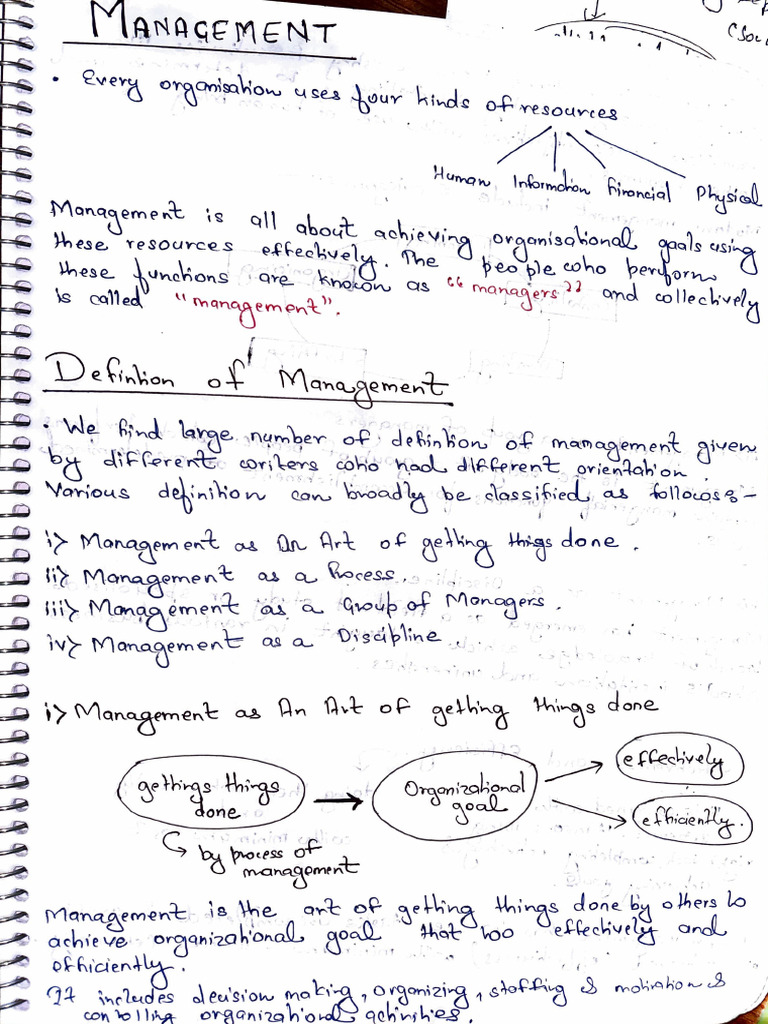 MANAGEMENT
(Sou
• Every organisation uses four kinds of resources
Human Information financial Physical
Management is all about achieving organisational goals using
these resources effectively. The people who perform
these functions are known as "managers" and collectively
is called "management".
Defintion of Management
• We find large number of defintion of management given
by different writers who had different orientation.
Various definition can broadly be classified as follows:-
i> Management as An Art of getting things done.
ii> Management as a Process.
iii> Management as a Group of Managers.
iv> Management as a Discipline.
i> Management as An Art of getting things done
gettings things done
Organizational goal
effectively
efficiently.
by process of
management
Management is the art of getting things done by others to
achieve organizational goal that too effectively and
efficiently.
It includes decision making, organizing, staffing & motivation &
controlling organizational activities.